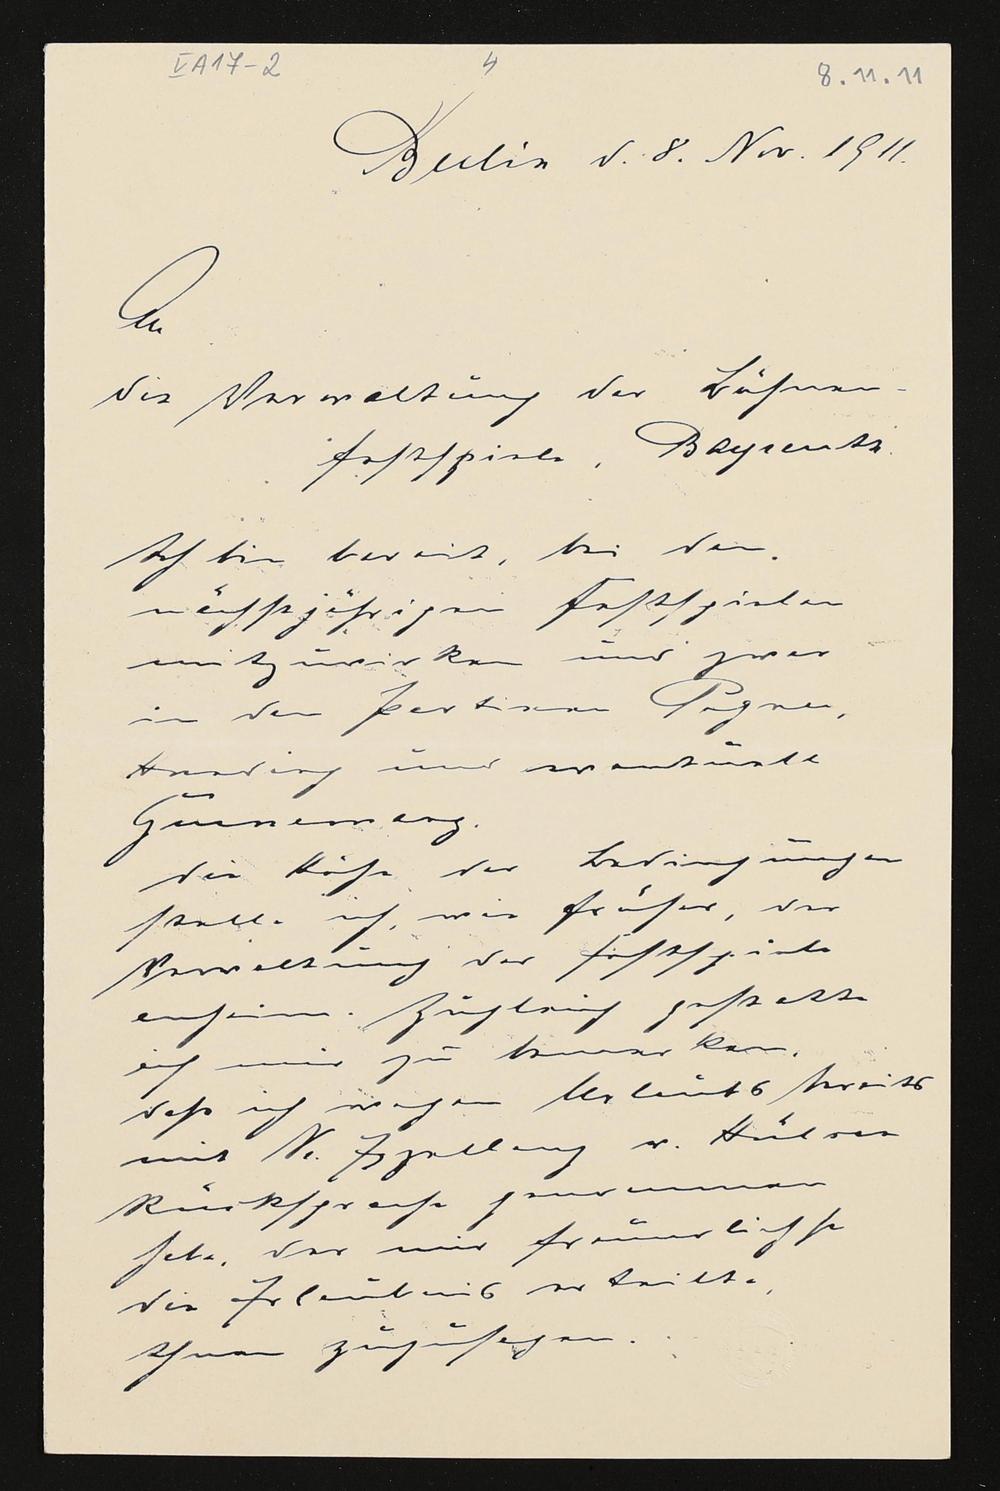 VA17-2 4 8.11.11
Berlin d. 8. Nov. 1911.
An
die Verwaltung der Bühnen-
festspiele, Bayreuth.
Ich bin bereit, bei den
nächstjährigen Festspielen
mitzuwirken und zwar
in den Partieen Pogner,
Hunding und eventuell
Gurnemanz.
Die Höhe der Bedingungen
stelle ich, wie früher, der
Verwaltung der Festspiele
anheim. Zugleich gestatte
ich mir zu bemerken,
daß ich wegen Urlaubs bereits
mit Sr. Exzellenz v. Hülsen
Rücksprache genommen
habe, der mir freundlichst
die Erlaubnis erteilte,
Ihnen zuzusagen.